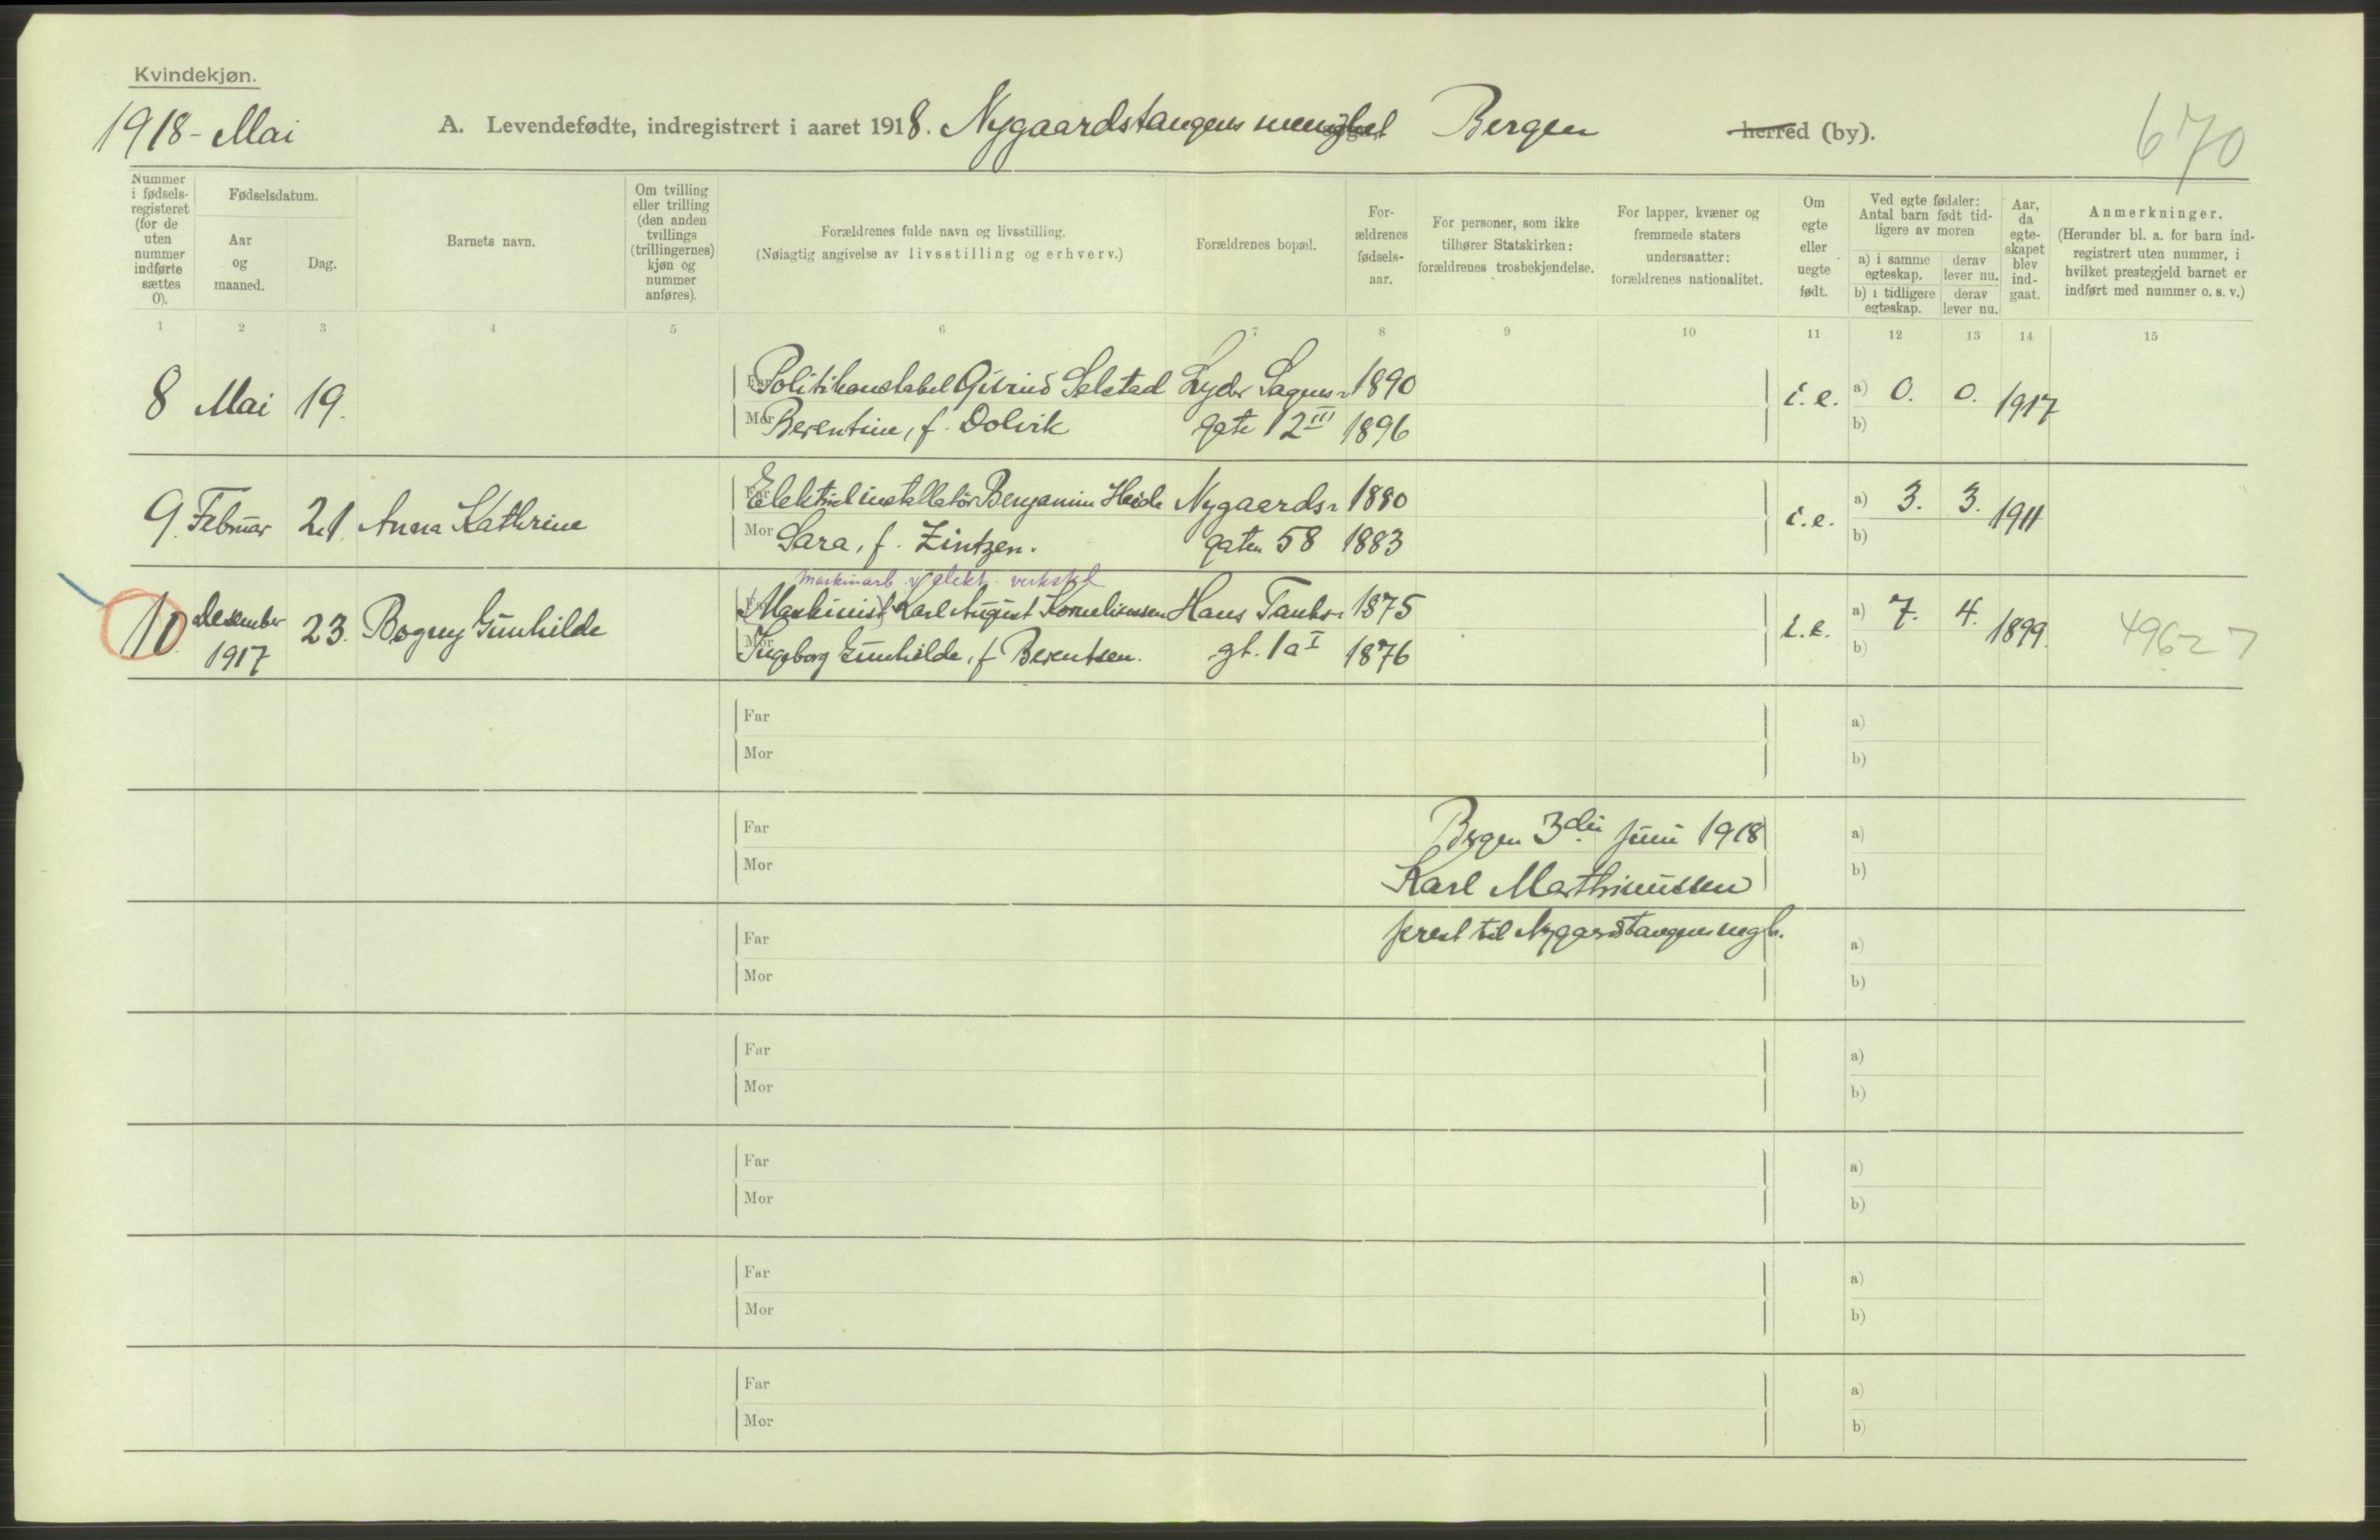 Kvindekjøn.
1918 - Mai
A. Levendefødte, indregistrert i aaret 1918. Nygaardstangens menighet Bergen herred (by).
670
Nummer i fødsels-registeret (for de uten nummer indførte sættes 0).
Fødselsdatum.
Aar og maaned.
Dag.
Barnets navn.
Om tvilling eller trilling (den anden tvillings (trillingernes) kjøn og nummer anføres).
Forældrenes fulde navn og livsstilling.
(Nøiagtig angivelse av livsstilling og erhverv.)
Forældrenes bopæl.
For-ældrenes fødsels-aar.
For personer, som ikke tilhører Statskirken: forældrenes trosbekjendelse.
For lapper, kvæner og fremmede staters undersaatter: forældrenes nationalitet.
Om egte eller uegte født.
Ved egte fødsler: Antal barn født tid-ligere av moren
a) i samme egteskap.
derav lever nu.
b) i tidligere egteskap.
derav lever nu.
Aar, da egte-skapet blev ind-gaat.
Anmerkninger.
(Herunder bl. a. for barn ind-registrert uten nummer, i hvilket prestegjeld barnet er indført med nummer o. s. v.)
1 2 3 4 5 6 7 8 9 10 11 12 13 14 15
8 Mai 19. Far Politikonstabel Eivind Selstad Lyder Sagens 1890 i. e. a) 0. 0. 1917
Mor Berentine, f. Dolvik gate 12 III 1896 b)
9. Februar 21. Anna Kathrine Far Elektriel installatør Benjamin Heide Nygaards- 1880 i. e. a) 3. 3. 1911
Mor Sara, f. Zintzen. gaten 58 1883 b)
maskinarb. v/ elekt. verksted
10. desember 23. Bogny Gunhilde Far (Maskinist) Karl August Korneliussen Hans Tanks- 1875 i. e. a) 7. 4. 1899. 49627
1917 Mor Ingeborg Gunhilde, f. Berentsen. gt. 1a I 1876 b)
Far a)
Mor b)
Far Bergen 3die juni 1918 a)
Mor Karl Marthinussen b)
Far prest til Nygardstangens mgh. a)
Mor b)
Far a)
Mor b)
Far a)
Mor b)
Far a)
Mor b)
Far a)
Mor b)